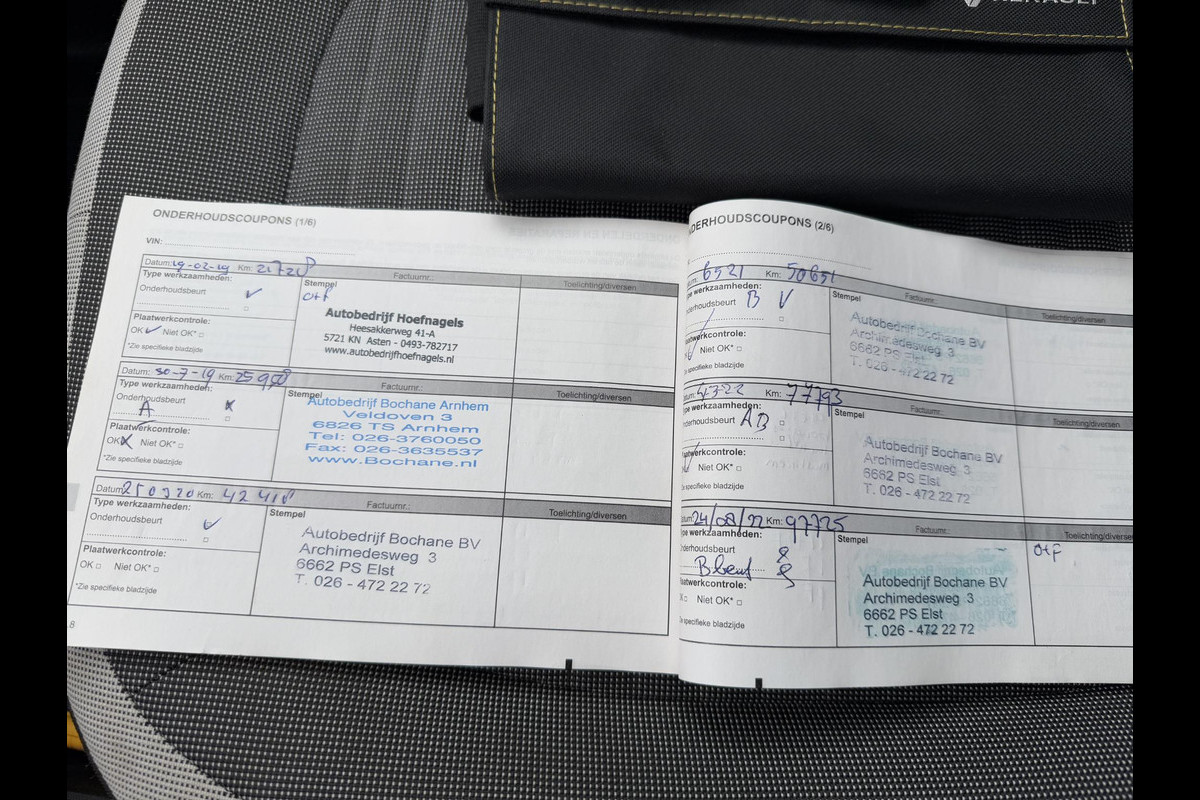 RENAULT
ONDERHOUDSCOUPONS (1/6)
VIN:
Datum: 19-02-19 Km: 21720
Factuurnr.:
Toelichting/diversen
Type werkzaamheden:
Onderhoudsbeurt
Plaatwerkcontrole:
OK Niet OK*
*Zie specifieke bladzijde
Stempel
O+F
Autobedrijf Hoefnagels
Heesakkerweg 41-A
5721 KN Asten - 0493-782717
www.autobedrijfhoefnagels.nl
Datum: 30-7-19 Km:
Factuurnr.:
Toelichting/diversen
Type werkzaamheden:
Onderhoudsbeurt
A
Plaatwerkcontrole:
OK Niet OK*
*Zie specifieke bladzijde
Stempel
Autobedrijf Bochane Arnhem
Veldoven 3
6826 TS Arnhem
Tel: 026-3760050
Fax: 026-3635537
www.Bochane.nl
Datum: 250920 Km:
Factuurnr.:
Toelichting/diversen
Type werkzaamheden:
Onderhoudsbeurt
Plaatwerkcontrole:
OK Niet OK*
*Zie specifieke bladzijde
Stempel
Autobedrijf Bochane BV
Archimedesweg 3
6662 PS Elst
T. 026 - 472 22 72
8
NDERHOUDSCOUPONS (2/6)
6521 Km: 50651
Factuurnr.:
Toelichting/diversen
werkzaamheden:
nderhoudsbeurt B V
aatwerkcontrole:
Niet OK*
specifieke bladzijde
Stempel
Autobedrijf Bochane BV
Archimedesweg 3
6662 PS Elst
T. 026 - 472 22 72
4322 Km: 77793
Factuurnr.:
Toelichting/diversen
werkzaamheden:
nderhoudsbeurt AB
aatwerkcontrole:
Niet OK*
specifieke bladzijde
Stempel
Autobedrijf Bochane BV
Archimedesweg 3
6662 PS Elst
T. 026 - 472 22 72
24/08/22 Km: 97725
Factuurnr.:
Toelichting/diversen
werkzaamheden:
nderhoudsbeurt
B beurt
aatwerkcontrole:
Niet OK*
specifieke bladzijde
Stempel
O+F
Autobedrijf Bochane BV
Archimedesweg 3
6662 PS Elst
T. 026 - 472 22 72